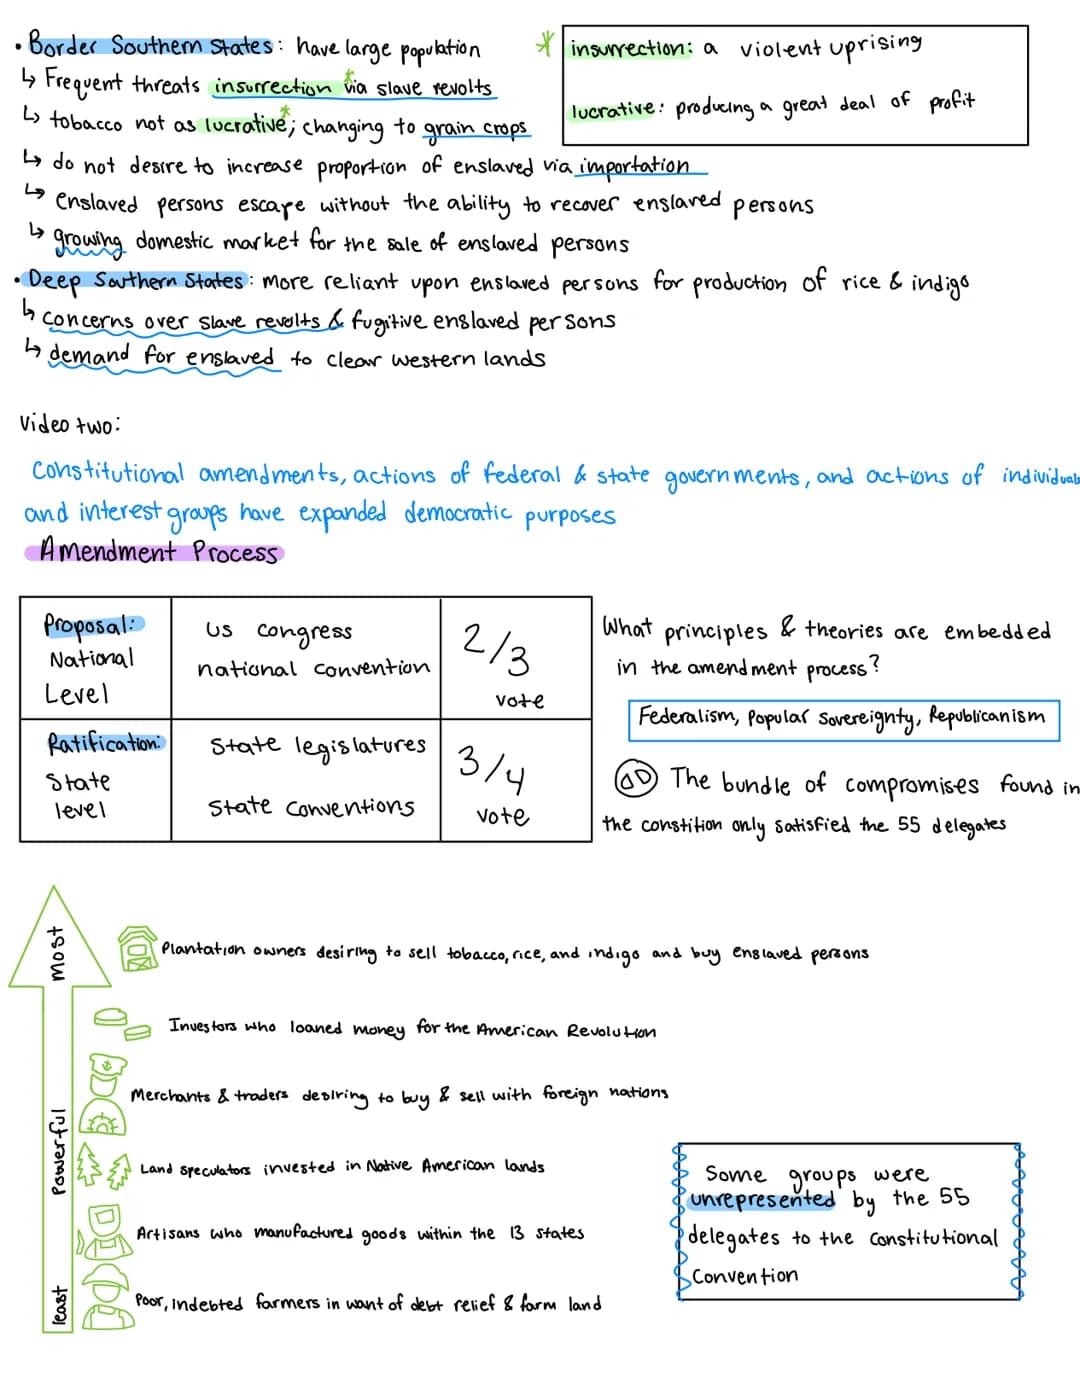 • Border Southern States: have large population
↳ Frequent threats insurrection* via slave revolts
↳ tobacco not as lucrative*; changing to grain crops
* insurrection: a violent uprising
lucrative: producing a great deal of profit
↳ do not desire to increase proportion of enslaved via importation
↳ enslaved persons escape without the ability to recover enslaved persons
↳ growing domestic market for the sale of enslaved persons
• Deep Southern States: more reliant upon enslaved persons for production of rice & indigo
↳ concerns over slave revolts & fugitive enslaved persons
↳ demand for enslaved to clear western lands
Video two:
Constitutional amendments, actions of federal & state governments, and actions of individuals
and interest groups have expanded democratic purposes
Amendment Process
Proposal:
National
Level
US congress
national convention
2/3
vote
Ratification:
State
level
State legislatures
State conventions
3/4
vote
What principles & theories are embedded
in the amendment process?
Federalism, Popular Sovereignty, Republicanism
The bundle of compromises found in
the constition only satisfied the 55 delegates
most
Powerful
least
Plantation owners desiring to sell tobacco, rice, and indigo and buy enslaved persons
Investors who loaned money for the American Revolution
Merchants & traders desiring to buy & sell with foreign nations
Land speculators invested in Native American lands
Artisans who manufactured goods within the 13 states
Poor, indebted farmers in want of debt relief & farm land
Some groups were
unrepresented by the 55
delegates to the Constitutional
Convention